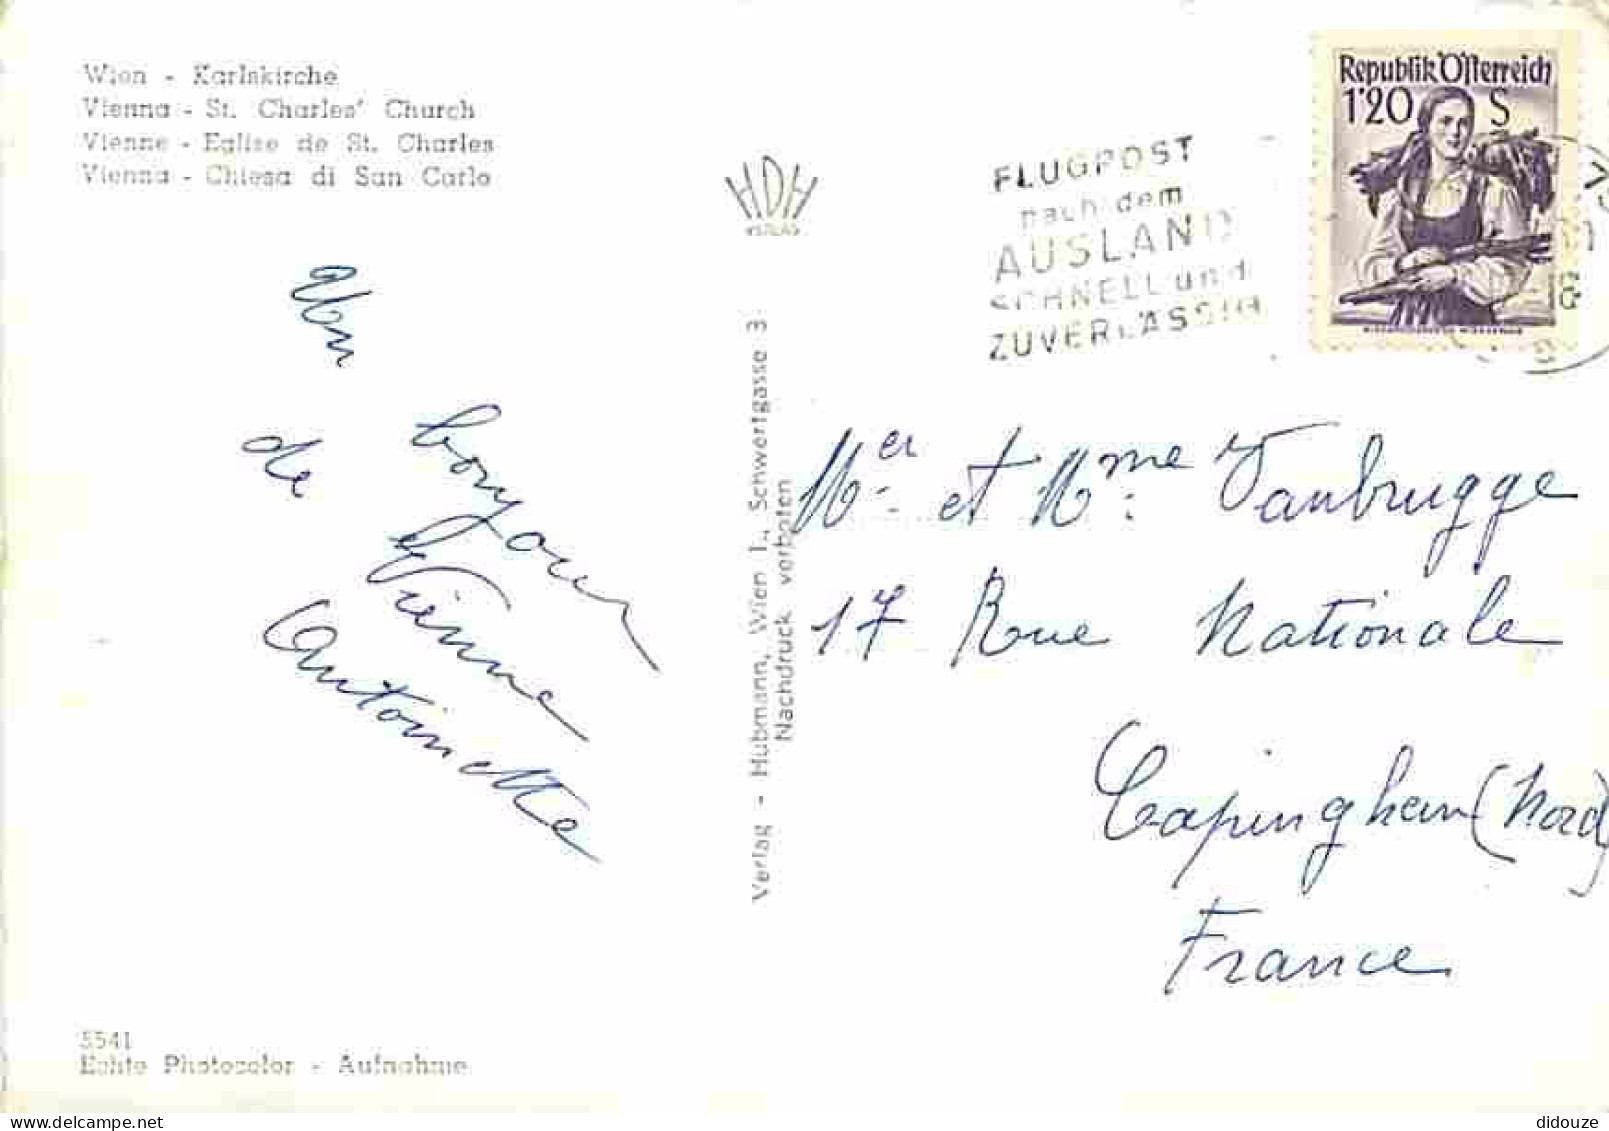 Wien - Karlskirche
Vienna - St. Charles' Church
Vienne - Eglise de St. Charles
Vienna - Chiesa di San Carlo
HDH
VERLAG
FLUGPOST
nach dem
AUSLAND
SCHNELL und
ZUVERLÄSSIG
Republik Österreich
1'20 S
Un
bonjour
de Vienne
Antoinette
Verlag - Hubmann, Wien 1., Schwertgasse 3
Nachdruck verboten
Mer et Mme Vanbrugge
17 Rue Nationale
Capinghem (Nord)
France
5541
Echte Photocolor - Aufnahme
www.delcampe.net
didouze